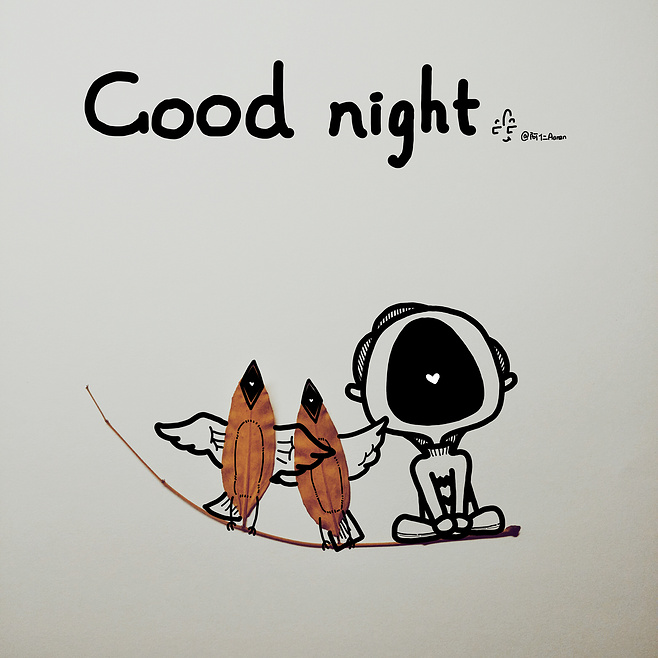 Good night
@阿仁_Aaran